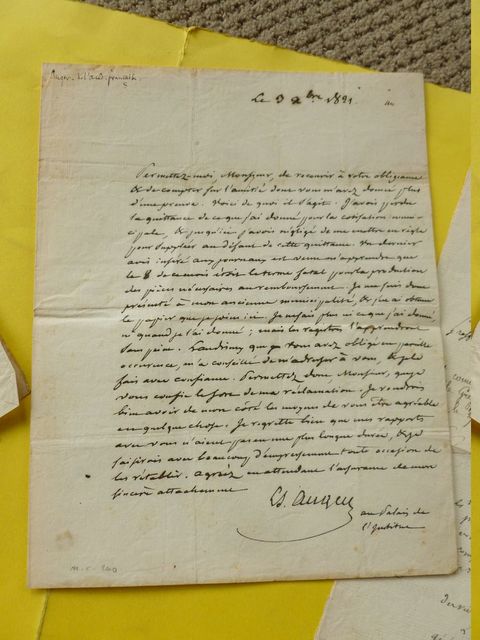 Auger. de l'acad. française.
Le 3 xbre 1821.
Permettez-moi, Monsieur, de recourir à votre obligeance
& de compter sur l'amitié dont vous m'avez donné plus
d'une preuve. Voici de quoi il s'agit. J'avois perdu
la quittance de ce que j'ai donné pour la cotisation muni-
cipale, & jusqu'ici j'avois négligé de me mettre en règle
pour suppléer au défaut de cette quittance. Un dernier
avis inséré aux journaux est venu m'apprendre que
le 8 de ce mois étoit le terme fatal pour la production
des pièces nécessaires au remboursement. Je me suis donc
présenté à mon ancienne municipalité, & j'ai obtenu
le papier que je joins ici. Je ne sais plus ni ce que j'ai donné
ni quand je l'ai donné; mais les registres l'apprendront
sans peine. qui vous avez obligé en pareille
occurence, m'a conseillé de m'adresser à vous, & je le
fais avec confiance. Permettez donc, Monsieur, que je
vous confie le sort de ma réclamation. Je voudrois
bien avoir de mon côté les moyens de vous être agréable
en quelque chose. Je regrette bien que mes rapports
avec vous n'aient pas eu une plus longue durée, & je
saisirois avec beaucoup d'empressement toute occasion de
les rétablir. Agréez en attendant l'assurance de mon
sincère attachement
Ls. Auger
au Palais de
l'Institut